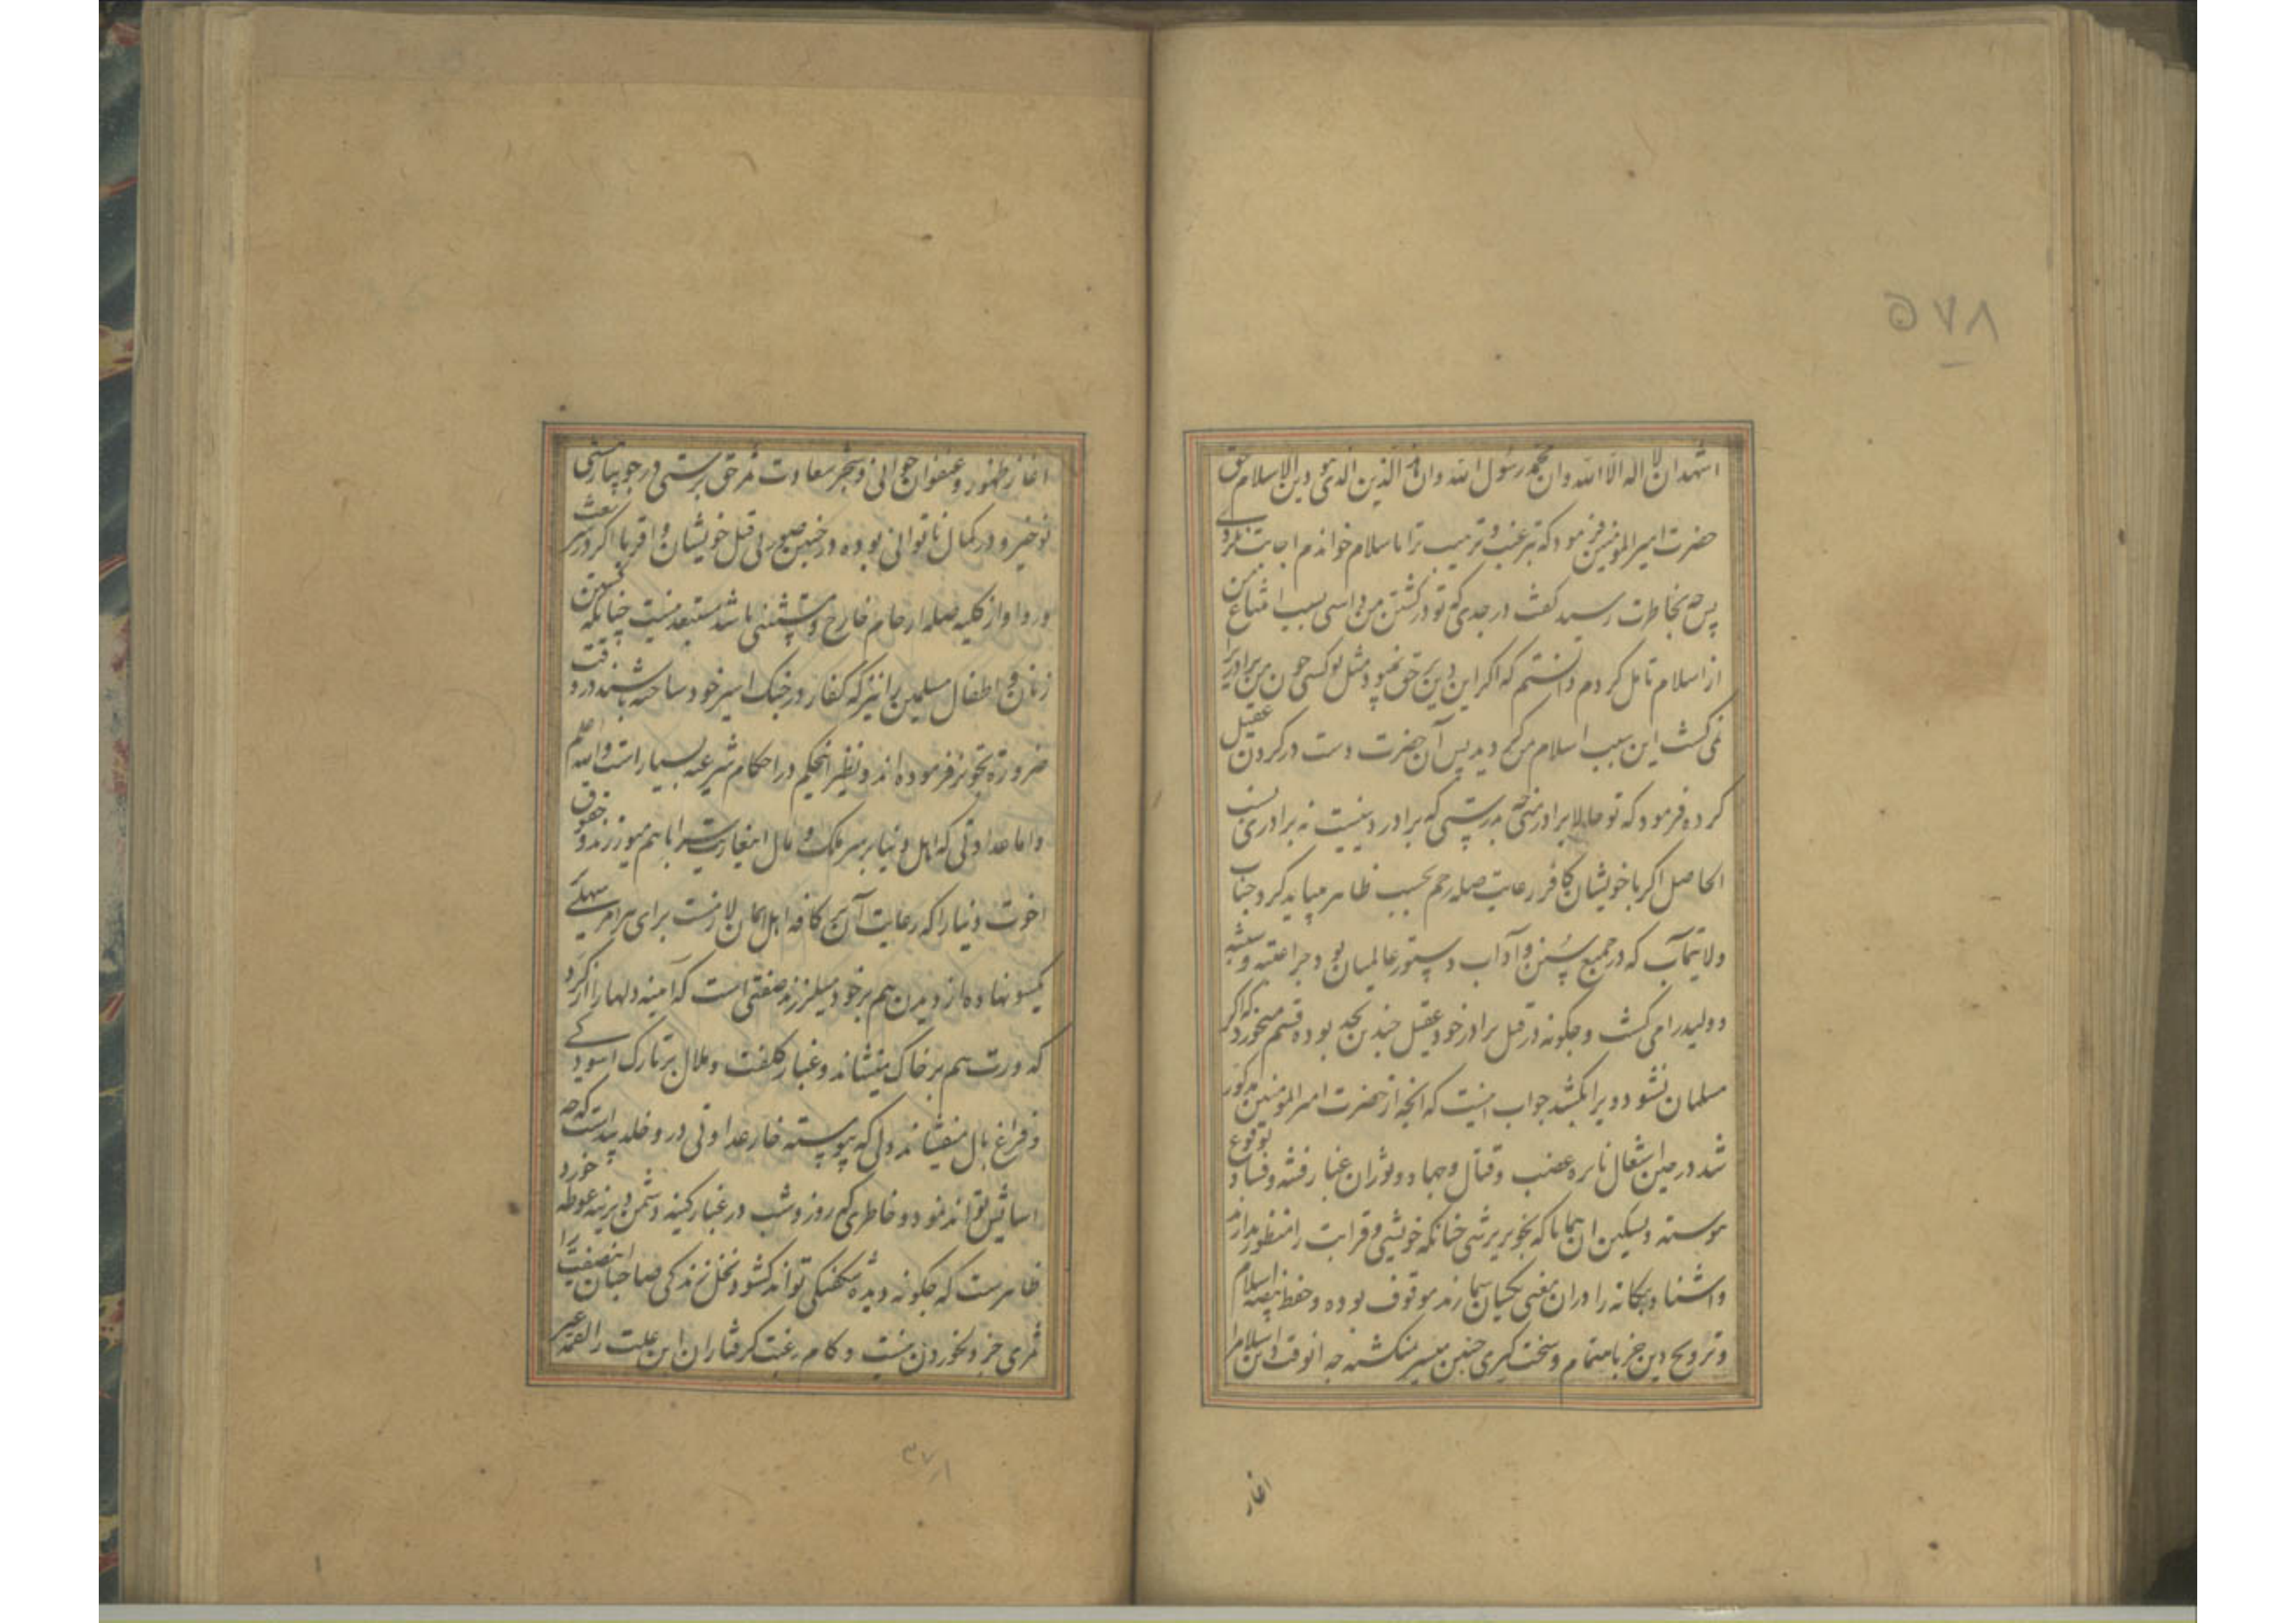 ۵۷۸
اشهد ان لا اله الا الله وان محمد رسول الله وان هذا الدین الذی هو دین الاسلام حق
حضرت امیرالمؤمنین فرمود که ترغیب و ترهیب ترا باسلام خواندم اجابت نکردی
پس چه بخاطرت رسید گفت در جدی که تو در کشتن من داشتی بسبب امتناع من
از اسلام تامل کردم دانستم که اگر این دین حق نمیبود مثل تو کسی چون من برادر را
نمی کشت این سبب اسلام من گردید پس آن حضرت دست در گردن عقیل
کرده فرمود که تو حالا برادر منی چه بدرستی که برادر دینیست نه برادری نسب
الحاصل اگر با خویشان کافر رعایت صله رحم بحسب ظاهر میباید کرد جناب
ولایتمآب که در جمیع سنن و آداب دستور عالمیان بود چرا عتبه و شیبه
و ولید را می کشت و چگونه در قتل برادر خود عقیل چندین بجد بوده قسم میخورد که اگر
مسلمان نشود ویرا بکشد جواب اینست که آنچه از حضرت امیرالمؤمنین مذکور
شد در حین اشتعال نایره غضب و قتال و جهاد و ثوران غبار فتنه و فساد بوقوع
پیوسته و تسکین آن همانا که بخونریزشی چنانکه خویشی و قرابت را منظور ندارند
و آشنا و بیگانه را در آن معنی یکسان شمارند موقوف بوده و حفظ بیضه اسلام
و ترویج دین جز باهتمام و سخت گیری چنین میسر نمیگشته چه آنوقت دین اسلام را
اغاز
اغاز ظهور و عنفوان جوانی و شجر سعادت ثمر حق پرستی در جویبار هستی
نوخیز و در کمال ناتوانی بوده در چنین صورتی قتل خویشان و اقربا اگر در شریعت
ورود از کلیه صله ارحام خارج و مستثنی باشد مستبعد نیست چنانکه کشتن
زنان و اطفال مسلمین را نیز که کفار در جنگ اسیر خود ساخته باشند در وقت
ضرورة تجویز فرموده اند و نظیر اینحکم در احکام شرعیه بسیار است والله اعلم
و اما عداوتی که اهل دنیا بر سر ملک و مال این غارت سرا با هم میورزند و حقوق
اخوت دنیا را که رعایت آن بر کافه اهل ایمان لازمست برای هر امر سهلی
یکسو نهاده از دیدن هم بر خود میلرزند صفتی است که آئینه دلها را از گرد
کدورت هم بر خاک مینشاند و غبار کلفت و ملال بر تارک آسودگی
و فراغ بال میفشاند دلی که پیوسته خار عداوتی در و خلد پیداست که چه
اسایش تواند نمود و خاطری که روز و شب در غبار کینه دشمن دیرینه غوطه خورد
ظاهرست که چگونه دیده شکفتگی تواند گشود نخل زندگی صاحبان این صفت را
ثمری جز دل خوردن نیست و کام رغبت گرفتاران این علت را لقمه غیر
۳۷۱